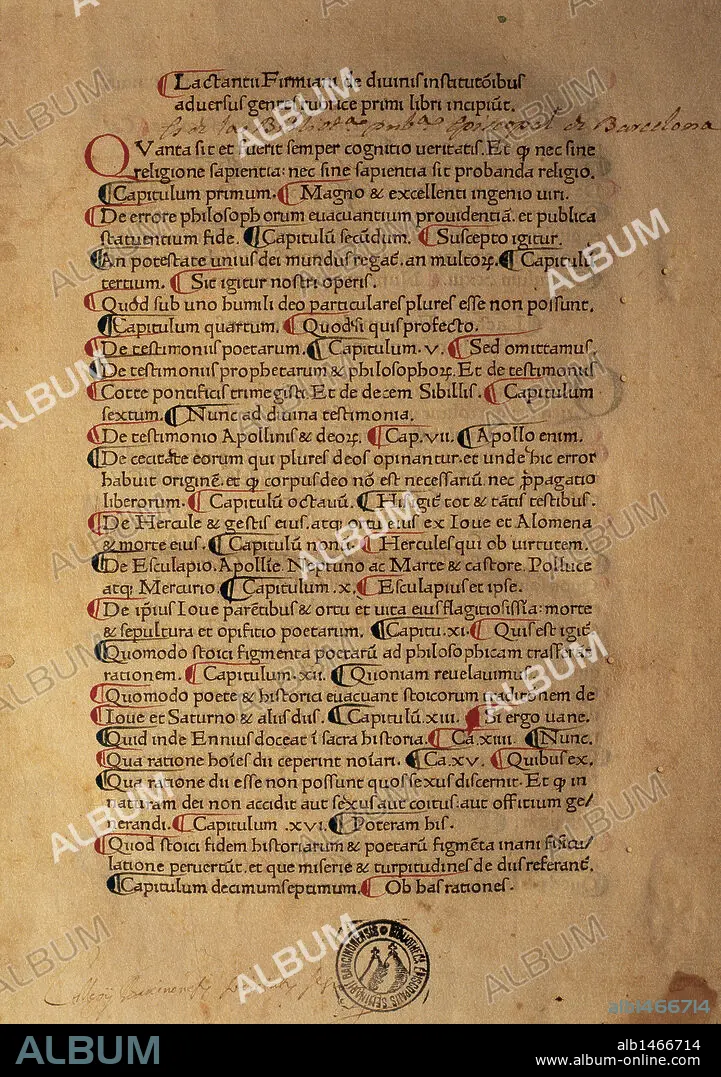 Lactantii Firmiani de diuinis institutōibus
aduersus gentes rubrice primi libri incipiūt.
es de la Bibliotᵃ pubᵃ Episcopal de Barcelona
QVanta sit et fuerit semper cognitio ueritatis. Et ꝙ nec sine
religione sapientia: nec sine sapientia sit probanda religio.
Capitulum primum. Magno & excellenti ingenio uiri.
De errore philosophorum euacuantium prouidentiā. et publica
statuentium fide. Capitulū secūdum. Suscepto igitur.
An potestate unius dei mundus regat̄. an multoꝝ. Capitulū
tertium. Sit igitur nostri operis.
Quòd sub uno humili deo particulares plures esse non possunt.
Capitulum quartum. Quodsi quis profecto.
De testimoniis poetarum. Capitulum .v. Sed omittamus.
De testimoniis prophetarum & philosophoꝝ. Et de testimoniis
Cotte pontificis trimegisti. Et de decem Sibillis. Capitulum
sextum. Nunc ad diuina testimonia.
De testimonio Apollinis & deoꝝ. Cap. vii. Apollo enim.
De cecitate eorum qui plures deos opinantur. et unde hic error
habuit originē. et ꝙ corpus deo nō est necessariū. nec ꝓpagatio
liberorum. Capitulū octauū. His igit̄ tot & tātis testibus.
De Hercule & gestis eius. atqꝫ ortu eius ex Ioue et Alomena
& morte eius. Capitulū nonū. Hercules qui ob uirtutem.
De Esculapio. Apollīe. Neptuno ac Marte & castore. Polluce
atqꝫ Mercurio. Capitulum .x. Esculapius et ipse.
De ip̄ius Ioue parētibus & ortu et uita eius flagitiosissīa: morte
& sepultura et opifitio poetarum. Capitu. xi. Quis est igit̄
Quomodo stoici figmenta poetarū ad philosophicam trasferāt
rationem. Capitulum .xii. Quoniam reuelauimus
Quomodo poete & historici euacuant stoicorum traditionem de
Ioue et Saturno & aliis diis. Capitulū. xiii. Si ergo uane.
Quid inde Ennius doceat ī sacra historia. Ca. xiiii. Nunc.
Qua ratione hoīes dii ceperint noīari. Ca. xv. Quibus ex.
Qua ratione dii esse non possunt quos sexus discernit. Et ꝙ in
naturam dei non accidit aut sexus aut coitus: aut offitium ge/
nerandi. Capitulum .xvi. Poteram his.
Quod stoici fidem historiarum & poetarū figmēta inani fisicu/
latione peruertūt. et que miserie & turpitudines de diis referant̄.
Capitulum decimumseptimum. Ob has rationes.
BIBLIOTHECA EPISCOPALIS SEMINARII BARCINONENSIS
ALBUM
alb1466714
ALBUM
alb1466714
www.album-online.com